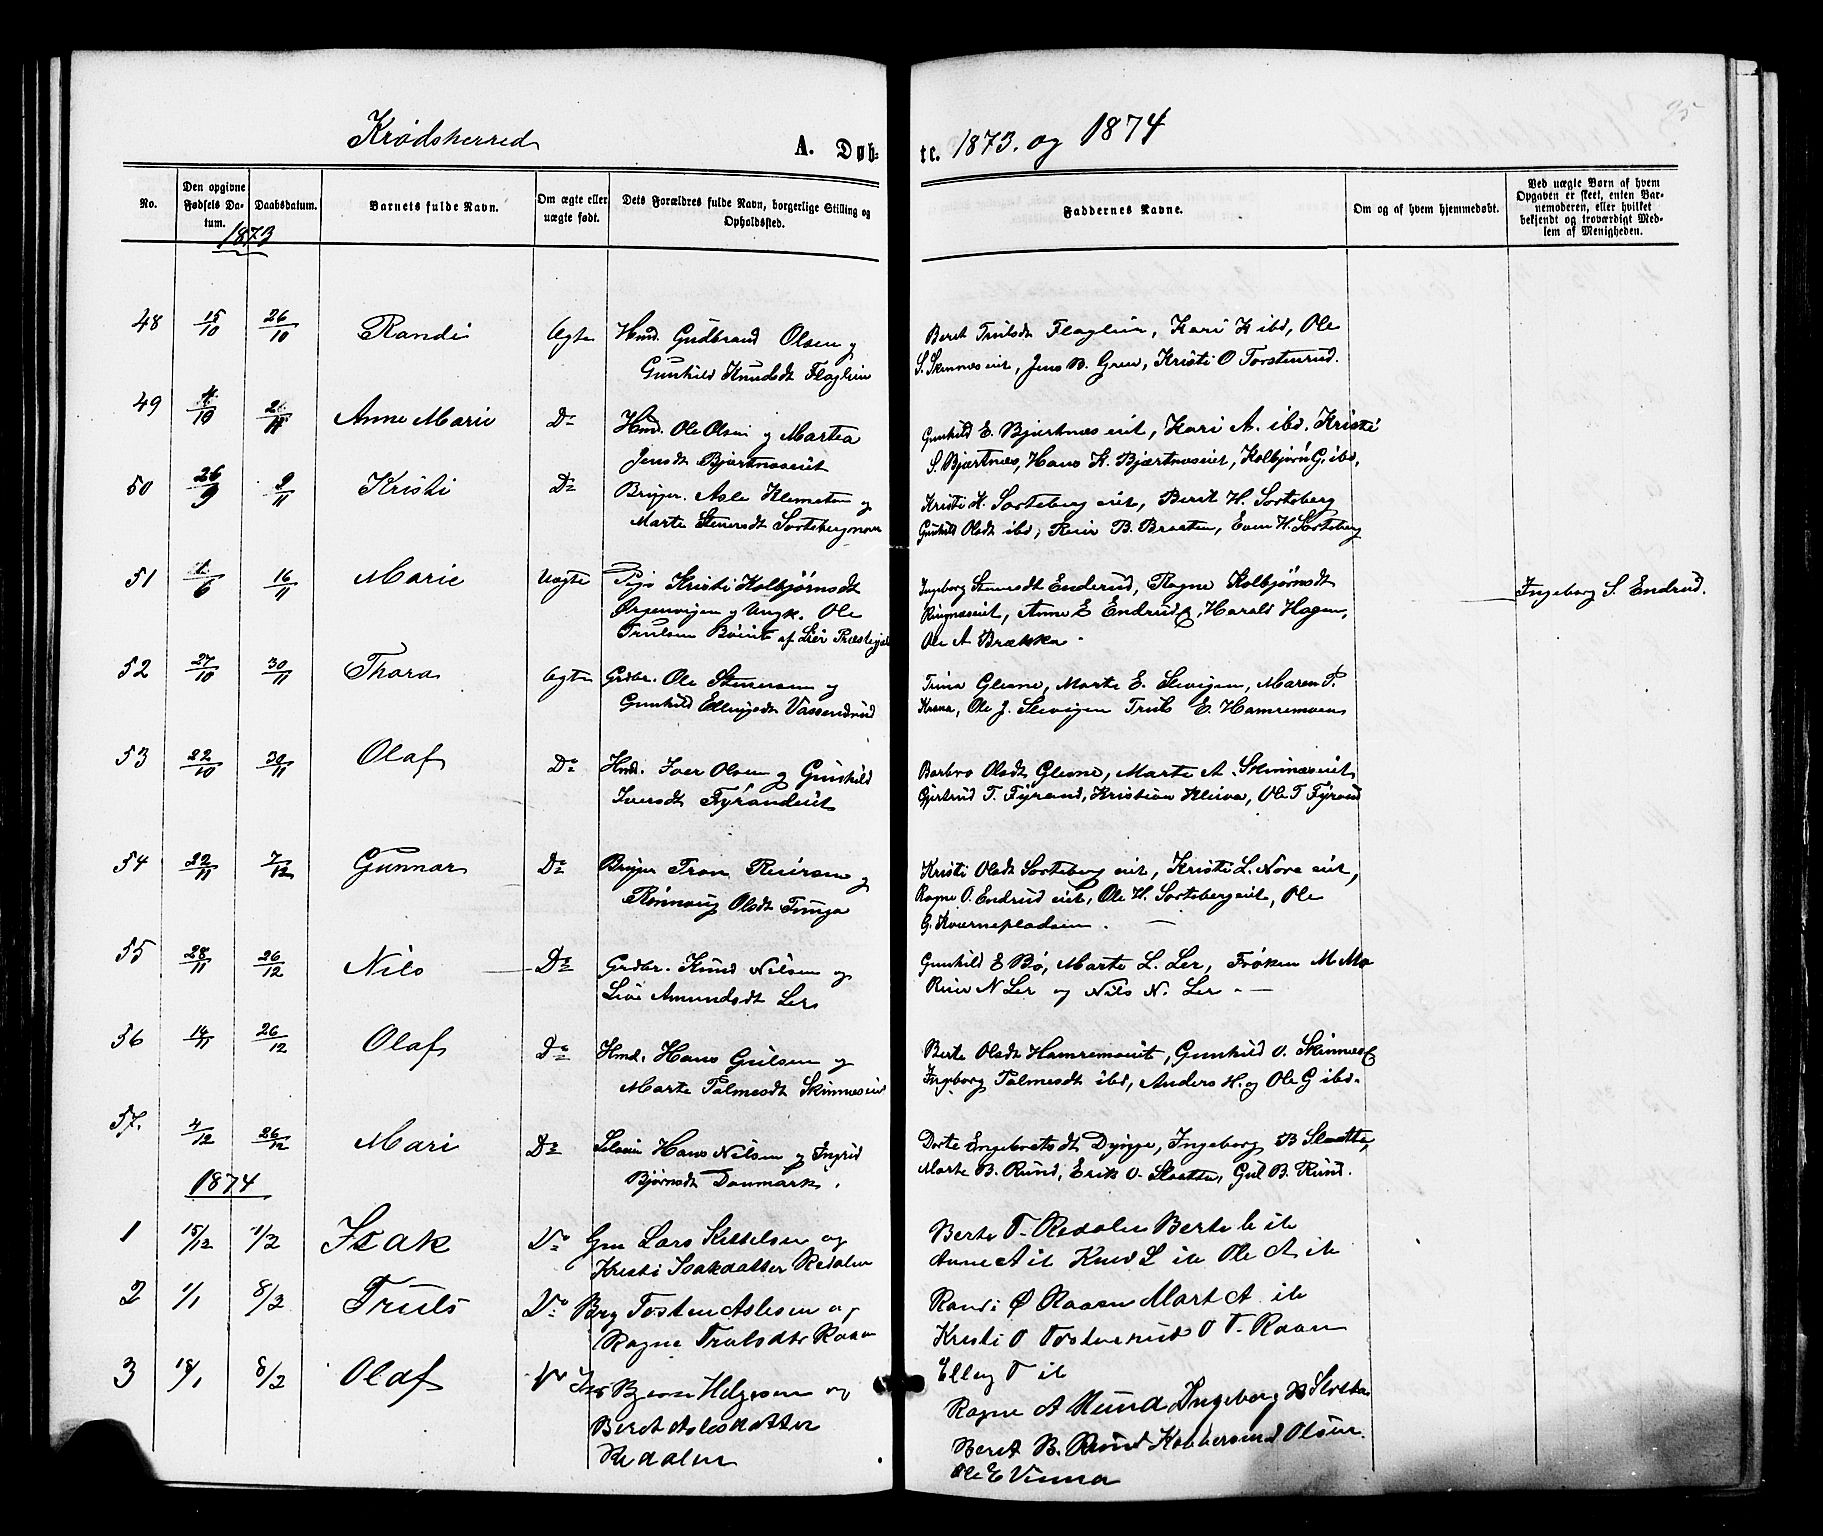 Krødsherred
A. Døb-
te. 1873. og 1874
No.
Den opgivne Fødsels Da-tum.
Daabsdatum.
Barnets fulde Navn.
Om ægte eller uægte født.
Dets Forældres fulde Navn, borgerlige Stilling og Opholdssted.
Faddernes Navne.
Om og af hvem hjemmedøbt.
Ved uægte Børn af hvem Opgaven er skeet, enten Bar-nemoderen, eller hvilket bekjendt og troværdigt Med-lem af Menigheden.
1873
48 15/10 26/10 Randi Ægte Hmd. Gudbrand Olsen og
Gunhild Knudsdt Flaglien
Beret Trulsdt Flaglien, Kari K ibd, Ole
S. Skinnes eiet, Jens B. Green, Kristi O Torstenrud.
49 Anne Marie Do Hmd. Ole Olsen og Martea
Jensdt Bjertneseiet
Gunhild E. Bjertnes eiet, Kari A. ibd. Kristi
S. Bjertnes, Hans K. Bjærtneseiet, Kolbjørn G. ibd.
50 26/9 9/11 Kristi Do Brugr. Asle Klemetsen og
Marte Stenersdt Sorteberg
Kristi H. Sorteberg eiet, Berit H. Sorteberg
Gunhild Olsdt ibd, Reier B. Braaten, Even H. Sorteberg
51 16/11 Marie Uægte Pige Kristi Kolbjørnsdt
og Ungk. Ole
Trulsen af Lier Præstegjeld
Ingeborg Stenersdt Enderud, Ragne Kolbjørnsdt
Ringneseiet, Anne E Endrude, Harald Hagen,
Ole A Brække.
Ingeborg S. Endrud.
52 27/10 30/11 Thora Ægte Grdbr. Ole Stenersen og
Gunhild Ellingsdt Vassendrud
Trina Glesne, Marte E. Slevigen, Maren P.
Krona, Ole J. Slevigen Truls E. Hamremoen
53 22/10 30/11 Olaf Do Hmd. Iver Olsen og Gunhild
Iversdt Fyrandeiet
Barbro Olsdt Glesne, Marte A. Skinneseiet
Gjertrud T. Fyrand, Kristian Kleiva, Ole T Fyrand
54 22/11 7/12 Gunnar Do Brugr Tron Reiersen og
Rønnaug Olsdt Tunga
Kristi Olsdt Sorteberg eiet, Kristi L. Nore eiet,
Ragne O. Endrud eiet, Ole H. Sortebergeiet, Ole
G. Kvernepladsen.
55 28/11 26/12 Nils Do Grdbr. Knud Nilsen og
Live Amundsdt Ler
Gunhild E Bø, Marte L. Ler, Frøken M Mo
Reier N Ler og Nils N. Ler.
56 14/11 26/12 Olaf Do Hmd. Hans Gulsen og
Marte Palmesdt Skinneseiet
Berte Olsdt Hamremoeiet, Gunhild O. Skinnese
Ingeborg Palmesdt ibd, Anders H. og Ole G ibd.
57. 4/12 26/12 Mari Do Hans Nilsen og Ingrid
Bjørnsdt Danmark.
Dorte Engebretsdt Dynge, Ingeborg B Slaatta,
Marte B. Rund, Erik O. Slaatta, Gul B. Rund.
1874
1 15/12 1/2 Isak Do Gm Lars Kittelsen og
Kristi Isakdatter Redalen
Berte T. Redalen Berte L ib
Anne A ib Knud L ib Ole A ib
2 1/1 8/2 Truls Do Brg Tosten Aslesen og
Ragne Trulsdtr Raaen
Randi Ø Raaen Mart A ib
Kristi O Tostensrud O T. Raaen
Elling T ib
3 18/1 8/2 Olaf Do Bjørn Helgesen og
Beret Aslesdatter
Redalen
Ragne A Rund Ingeborg B Slotta
Beret B. Rund Kabbersend Olsen.
Ole E Vinna